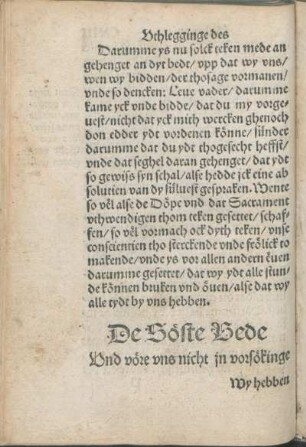 Uthlegginge des
Darumme ys nu solck teken mede an
gehenget an dyt bedt/ vpp dat wy vns/
wen wy bidden/ der thosage vormanen/
vnde so dencken: Leue vader/ darumme
kame yck vnde bidde/ dat du my vorge-
uest/ nicht dat yck mith wercken ghenoch
don edder ydt vordenen könne/ sünder
darumme dat du ydt thogesecht heffst/
vnde dat seghel daran gehenget/ dat ydt
so gewiss syn schal/ alse hedde yck eine ab
solutien van dy süluest gespraken. Wente
so vël alse de Döpe vnd dat Sacrament
vthwendigen thom teken gesettet/ schaf-
fen/ so vël vormach ock dyth teken/ vnse
conscientien tho sterckende vnde frölick to
makende/ vnde ys vor allen andern öuen
darumme gesettet/ dat wy ydt alle stun-
de können bruken vnd öuen/ alse dat wy
alle tydt by vns hebben.
De Söste Bede
Vnd vöre vns nicht jn vorsökinge
Wy hebben